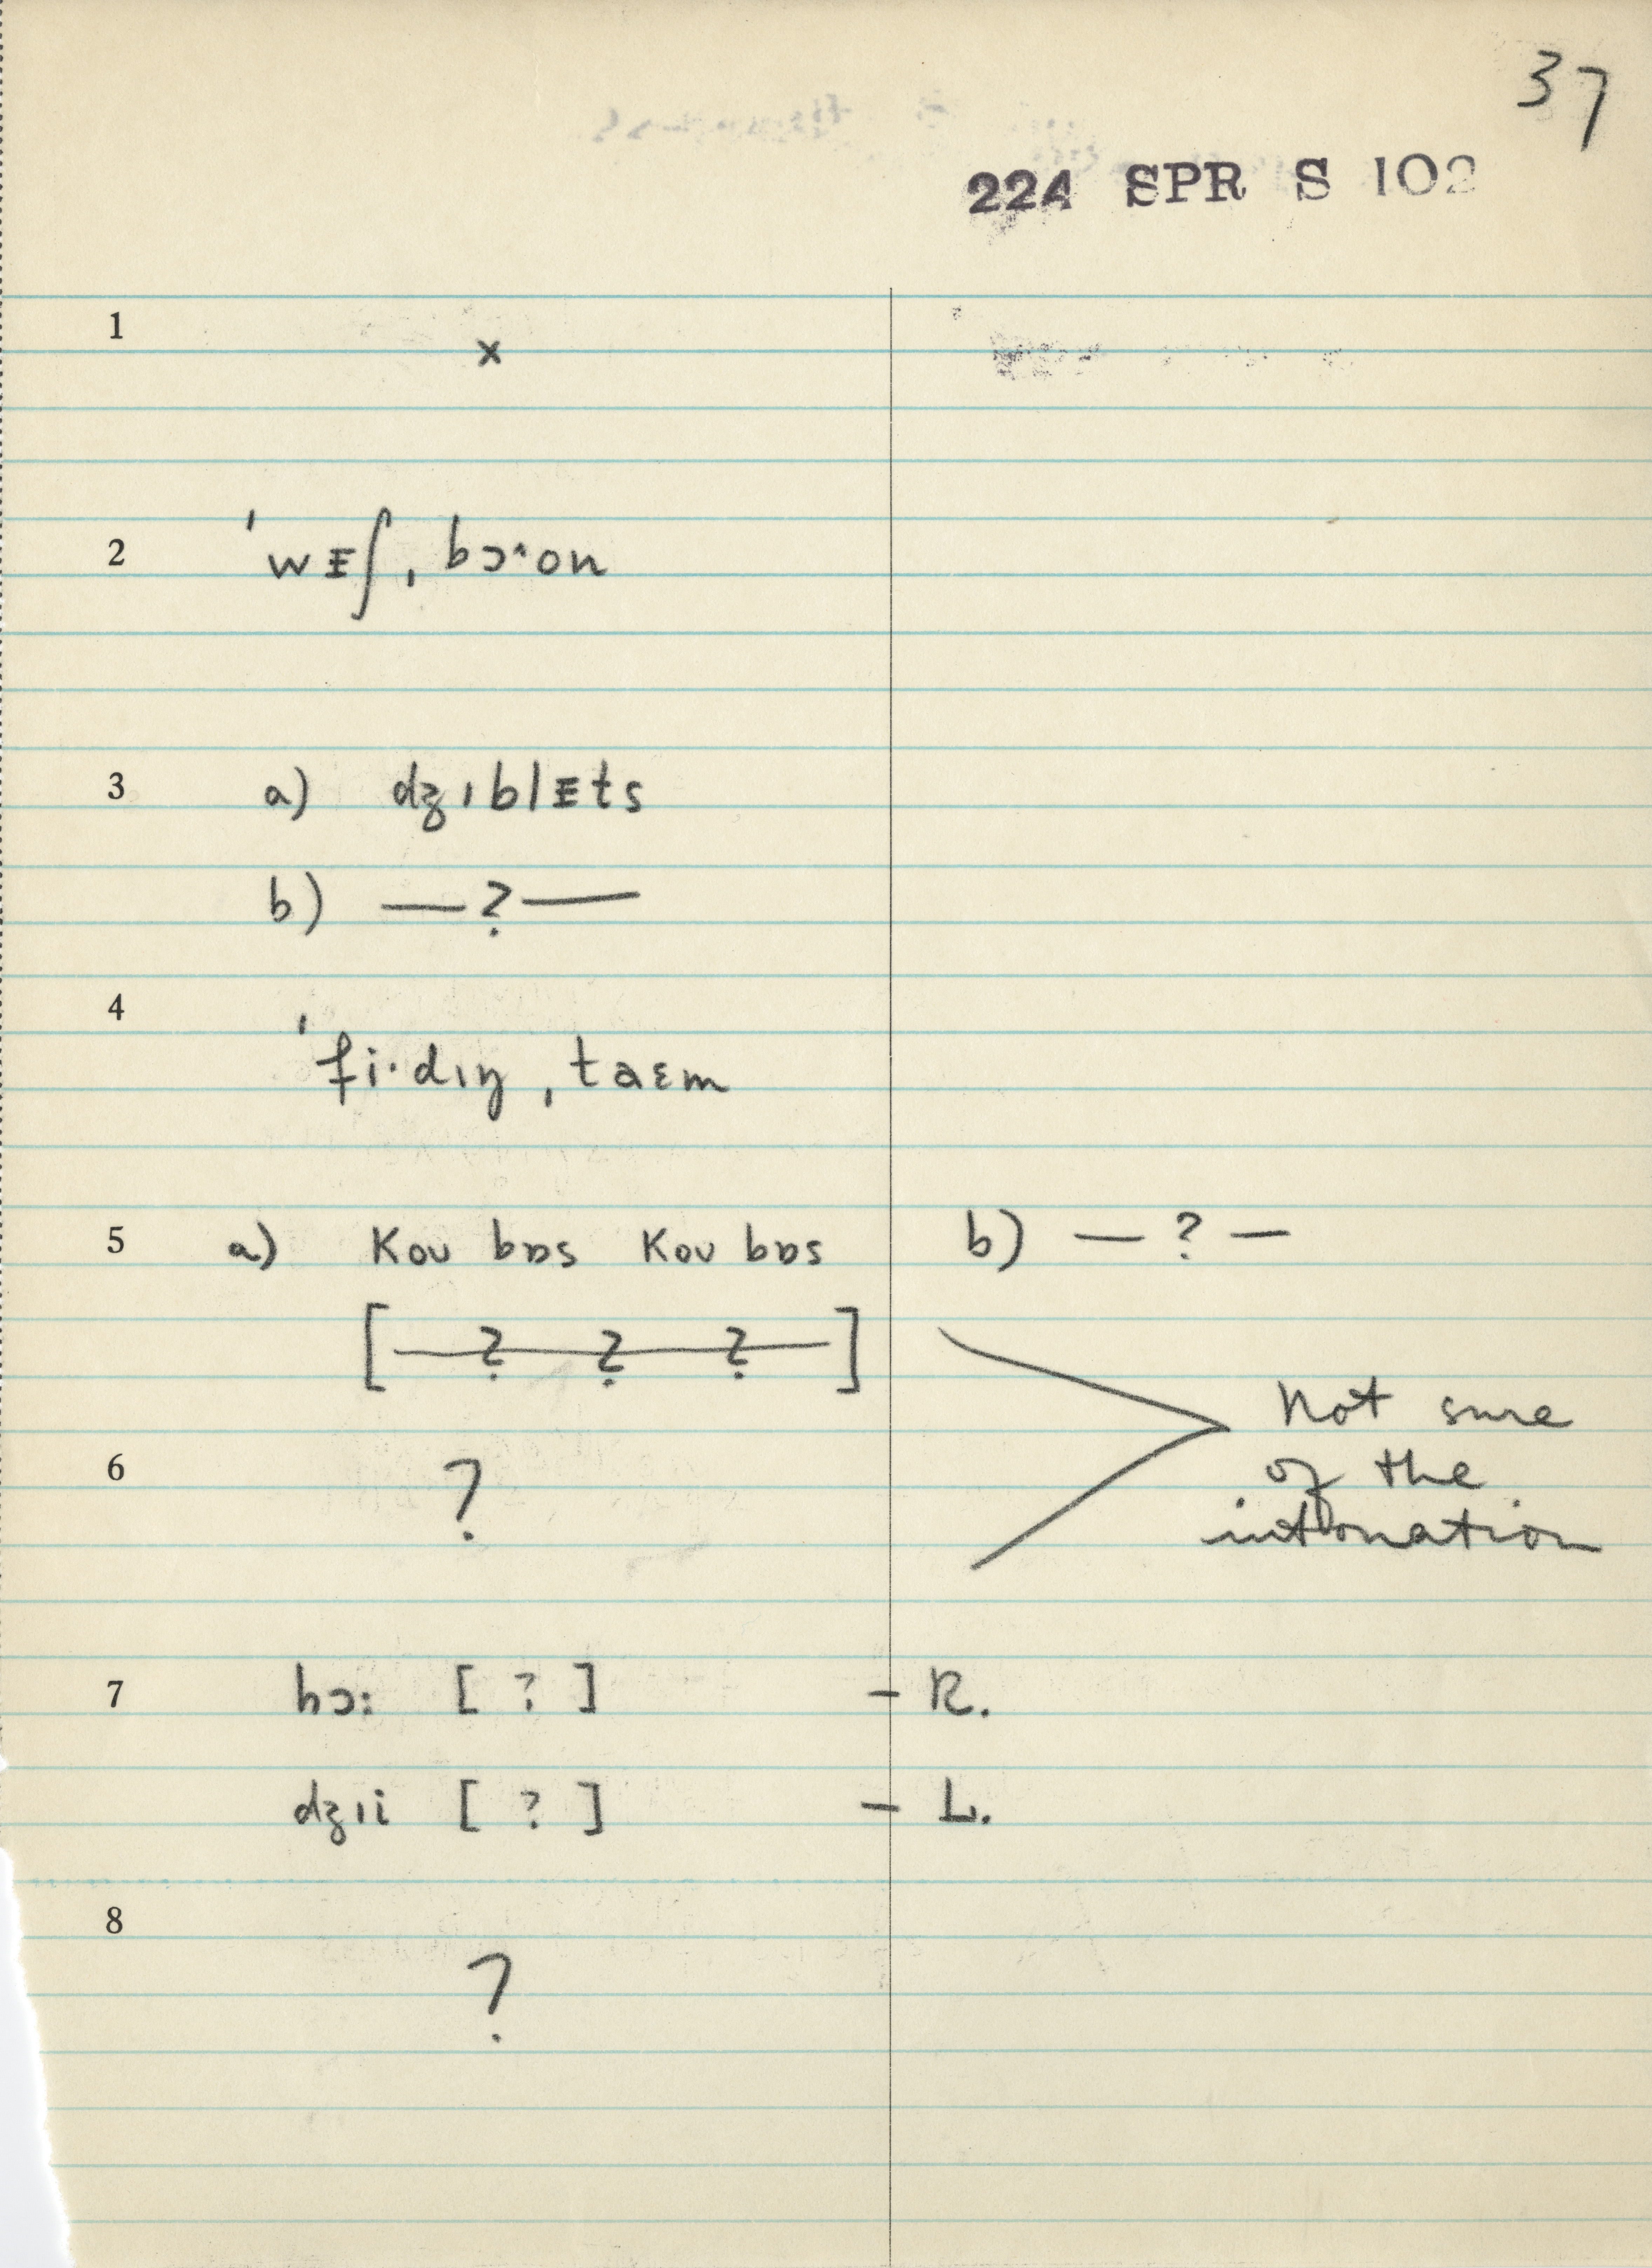 37
224 SPR S 102
1 x
2 ˈwᵻʃˌbɔ˞on
3 a) dʒɪblᵻts
b) — ? —
4 ˈfi·dɪŋˌtaɛm
5 a) Kou bɒs Kou bɒs b) — ? —
[— ? — ? — ? —]
Not sure
6 ? of the
intonation
7 hɔ: [ ? ] – R.
dʒɪi [ ? ] – L.
8 ?